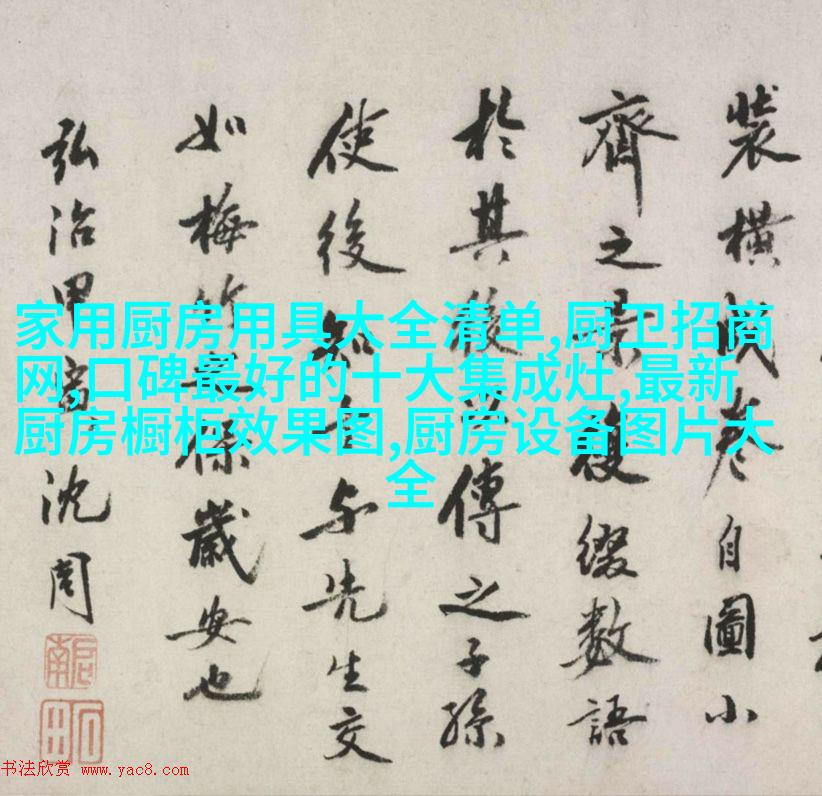 家用厨房用具大全清单,厨卫招商
网,口碑最好的十大集成灶,最新
厨房橱柜效果图,厨房设备图片大
全
裝橫成卷自圖小
齊之景復綴數語
於其後以傳之子孫
使後知吾與先生交
如梅竹歲安也
弘治甲寅沈周
啟南
石田
书法欣赏 www.yac8.com